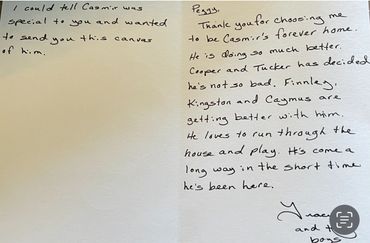 I could tell Casmir was
special to you and wanted
to send you this canvas
of him.
Peggy,
Thank you for choosing me
to be Casmir's forever home.
He is doing so much better.
Cooper and Tucker has decided
he's not so bad. Finnley,
Kingston and Caymus are
getting better with him.
He loves to run through the
house and play. It's come a
long way in the short time
he's been here.
and
boys